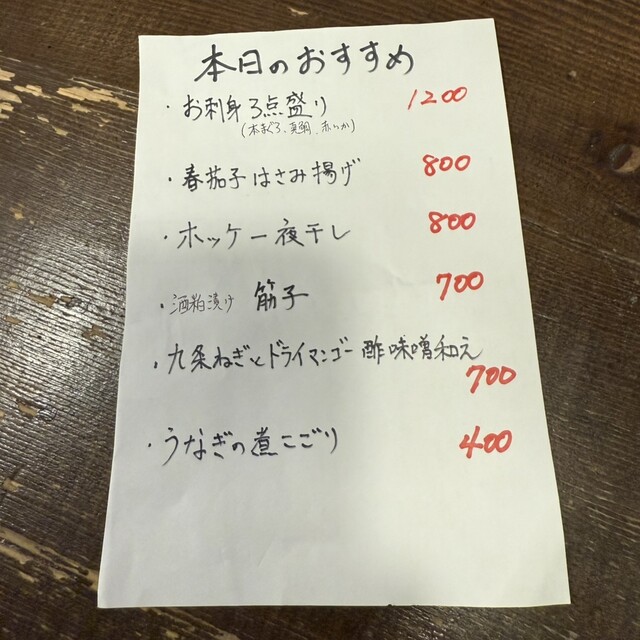 本日のおすすめ
・お刺身3点盛り 1200
(本まぐろ、真鯛、赤いか)
・春茄子はさみ揚げ 800
・ホッケ一夜干し 800
・酒粕漬け 筋子 700
・九条ねぎとドライマンゴー酢味噌和え
700
・うなぎの煮こごり 400